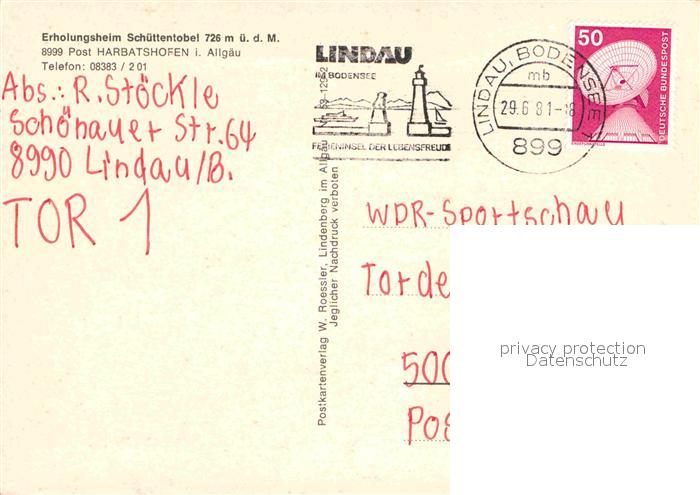 Erholungsheim Schüttentobel 726 m ü. d. M.
8999 Post HARBATSHOFEN i. Allgäu
Telefon: 08383 / 2 01
Abs.: R. Stöckle
Schönauer Str. 64
8990 Lindau/B.
TOR 1
LINDAU
IM BODENSEE
FERIENINSEL DER LEBENSFREUDE
LINDAU, BODENSEE 1
mb
29.6.81-18
899
50
DEUTSCHE BUNDESPOST
Postkartenverlag W. Roessler, Lindenberg im Allgäu
Jeglicher Nachdruck verboten
WDR-Sportschau
Torde
500
Pos
privacy protection
Datenschutz